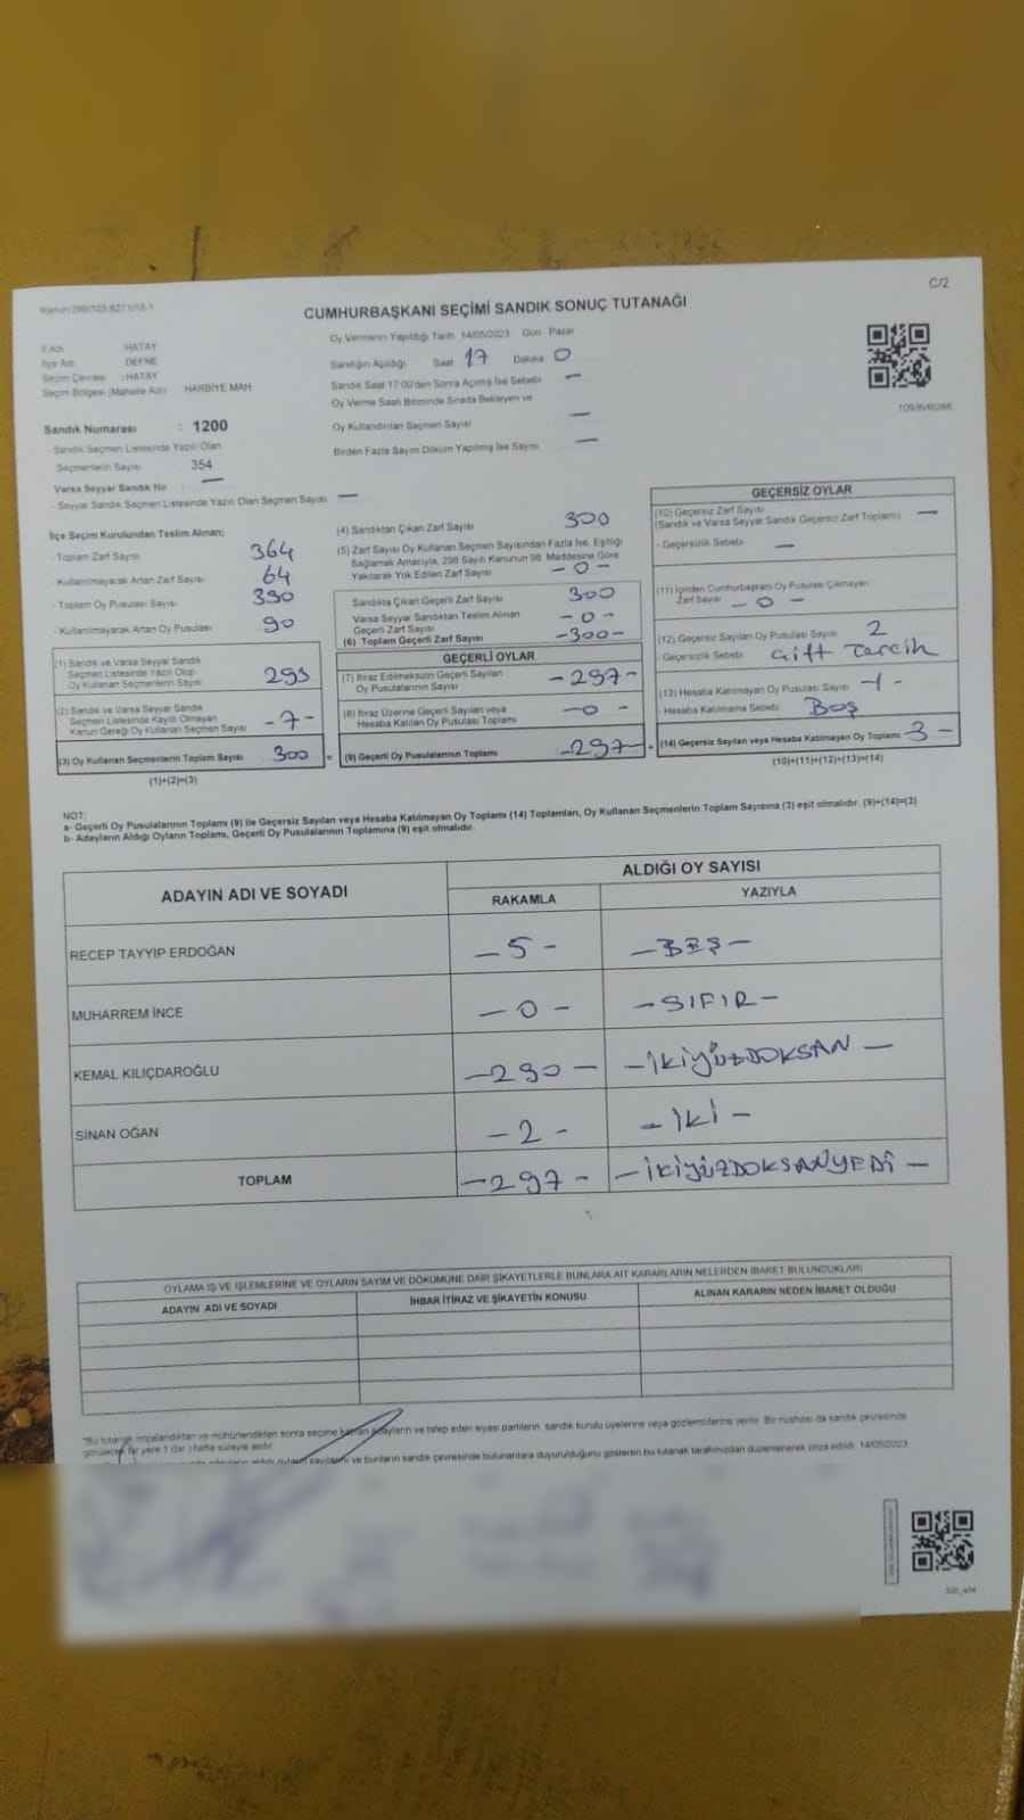 C/2
CUMHURBAŞKANI SEÇİMİ SANDIK SONUÇ TUTANAĞI
İl Adı : HATAY
İlçe Adı : DEFNE
Seçim Çevresi : HATAY
Seçim Bölgesi (Mahalle Adı) : HARBİYE MAH.
Sandık Numarası : 1200
- Sandık Seçmen Listesinde Yazılı Olan
Seçmenlerin Sayısı 354
Varsa Seyyar Sandık No —
- Seyyar Sandık Seçmen Listesinde Yazılı Olan Seçmen Sayısı —
Oy Vermenin Yapıldığı Tarih 14/05/2023 Gün : Pazar
Sandığın Açıldığı Saat 17 Dakika 0
Sandık Saat 17:00'den Sonra Açılmış İse Sebebi —
Oy Verme Saati Bitiminde Sırada Bekleyen ve
Oy Kullandırılan Seçmen Sayısı —
Birden Fazla Sayım Döküm Yapılmış İse Sayısı —
İlçe Seçim Kurulundan Teslim Alınan;
- Toplam Zarf Sayısı 364
- Kullanılmayarak Artan Zarf Sayısı 64
- Toplam Oy Pusulası Sayısı 390
- Kullanılmayarak Artan Oy Pusulası 90
(1) Sandık ve Varsa Seyyar Sandık
Seçmen Listesinde Yazılı Olup
Oy Kullanan Seçmenlerin Sayısı 293
(2) Sandık ve Varsa Seyyar Sandık
Seçmen Listesinde Kayıtlı Olmayan
Kanun Gereği Oy Kullanan Seçmen Sayısı -7-
(3) Oy Kullanan Seçmenlerin Toplam Sayısı 300 =
(1)+(2)=(3)
(4) Sandıktan Çıkan Zarf Sayısı 300
(5) Zarf Sayısı Oy Kullanan Seçmen Sayısından Fazla İse, Eşitliği
Sağlamak Amacıyla, 298 Sayılı Kanunun 98. Maddesine Göre
Yakılarak Yok Edilen Zarf Sayısı -0-
Sandıkta Çıkan Geçerli Zarf Sayısı 300
Varsa Seyyar Sandıktan Teslim Alınan
Geçerli Zarf Sayısı -0-
(6) Toplam Geçerli Zarf Sayısı -300-
GEÇERLİ OYLAR
(7) İtiraz Edilmeksizin Geçerli Sayılan
Oy Pusulalarının Sayısı -297-
(8) İtiraz Üzerine Geçerli Sayılan veya
Hesaba Katılan Oy Pusulası Toplamı -0-
(9) Geçerli Oy Pusulalarının Toplamı -297- +
GEÇERSİZ OYLAR
(10) Geçersiz Zarf Sayısı
(Sandık ve Varsa Seyyar Sandık Geçersiz Zarf Toplamı) —
- Geçersizlik Sebebi —
(11) İçinden Cumhurbaşkanı Oy Pusulası Çıkmayan
Zarf Sayısı -0-
(12) Geçersiz Sayılan Oy Pusulası Sayısı 2
- Geçersizlik Sebebi Çift Tercih
(13) Hesaba Katılmayan Oy Pusulası Sayısı -1-
- Hesaba Katılmama Sebebi Boş
(14) Geçersiz Sayılan veya Hesaba Katılmayan Oy Toplamı 3-
(10)+(11)+(12)+(13)=(14)
NOT:
a- Geçerli Oy Pusulalarının Toplamı (9) ile Geçersiz Sayılan veya Hesaba Katılmayan Oy Toplamı (14) Toplamları, Oy Kullanan Seçmenlerin Toplam Sayısına (3) eşit olmalıdır. (9)+(14)=(3)
b- Adayların Aldığı Oyların Toplamı, Geçerli Oy Pusulalarının Toplamına (9) eşit olmalıdır.
ADAYIN ADI VE SOYADI
ALDIĞI OY SAYISI
RAKAMLA YAZIYLA
RECEP TAYYIP ERDOĞAN -5- -BEŞ-
MUHARREM İNCE -0- -SIFIR-
KEMAL KILIÇDAROĞLU -290- -İKİYÜZDOKSAN-
SİNAN OĞAN -2- -İKİ-
TOPLAM -297- -İKİYÜZDOKSANYEDİ-
OYLAMA İŞ VE İŞLEMLERİNE VE OYLARIN SAYIM VE DÖKÜMÜNE DAİR ŞİKAYETLERLE BUNLARA AİT KARARLARIN NELERDEN İBARET BULUNDUKLARI
ADAYIN ADI VE SOYADI İHBAR İTİRAZ VE ŞİKAYETİN KONUSU ALINAN KARARIN NEDEN İBARET OLDUĞU
*Bu tutanak imzalandıktan ve mühürlendikten sonra seçime katılan adayların ve talep eden siyasi partilerin, sandık kurulu üyelerine veya gözlemcilerine verilir. Bir nüshası da sandık çevresinde
ve bunların sandık çevresinde bulunanlara duyurulduğunu gösteren bu tutanak tarafımızdan düzenlenerek imza edildi. 14/05/2023